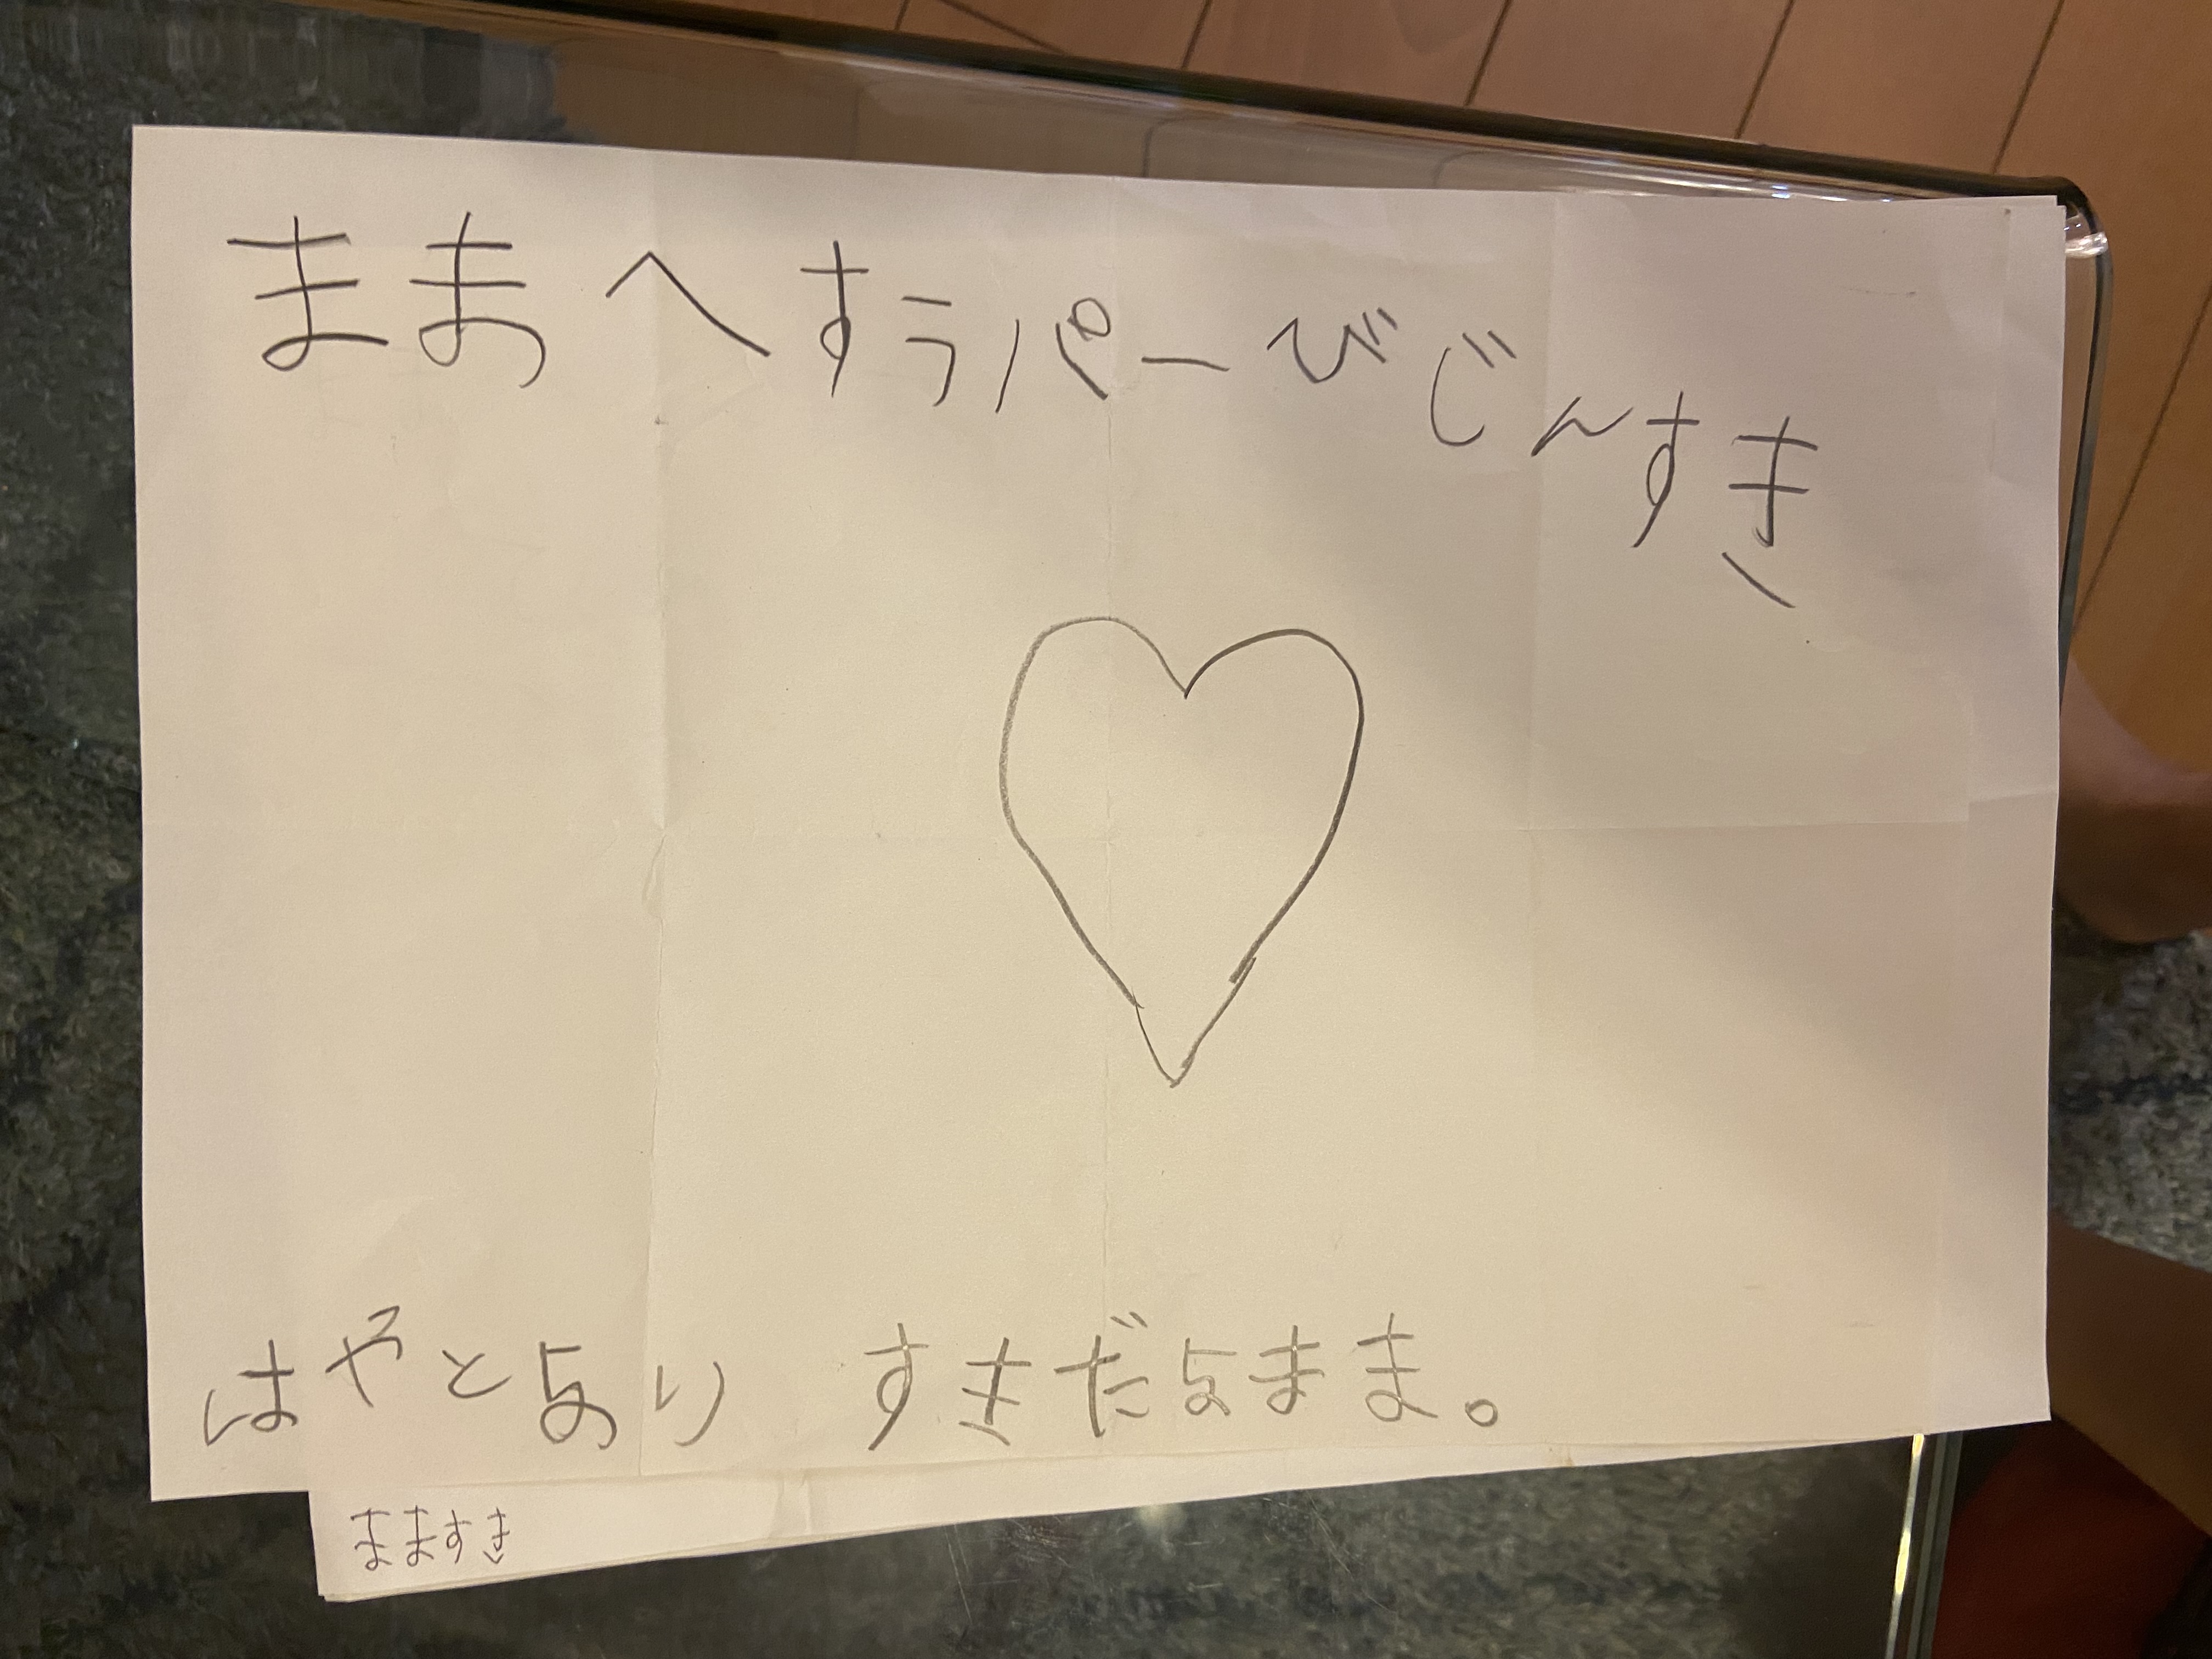 ままへすうパーびじんすき
はやとより すきだよまま。
まますき